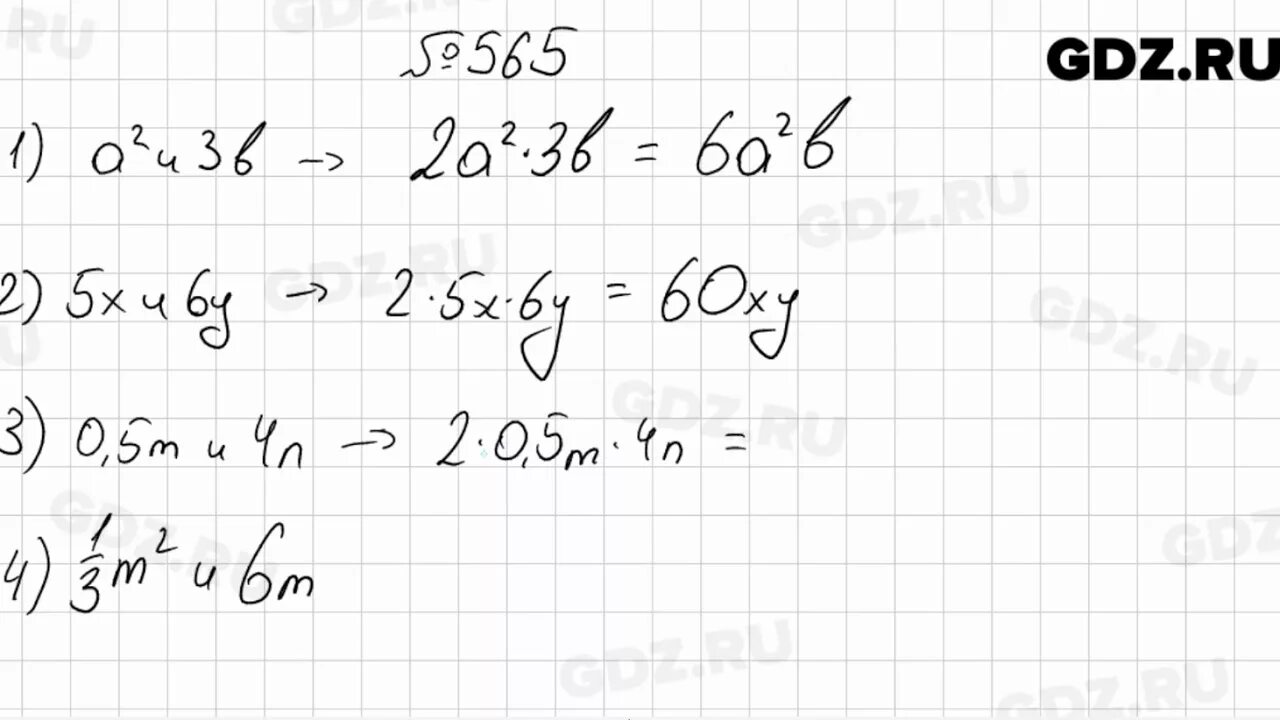 №565
GDZ.RU
1) a² и 3b → 2a²·3b = 6a²b
2) 5x и 6y → 2·5x·6y = 60xy
3) 0,5m и 4n → 2·0,5m·4n =
4) 1/3 m² и 6m